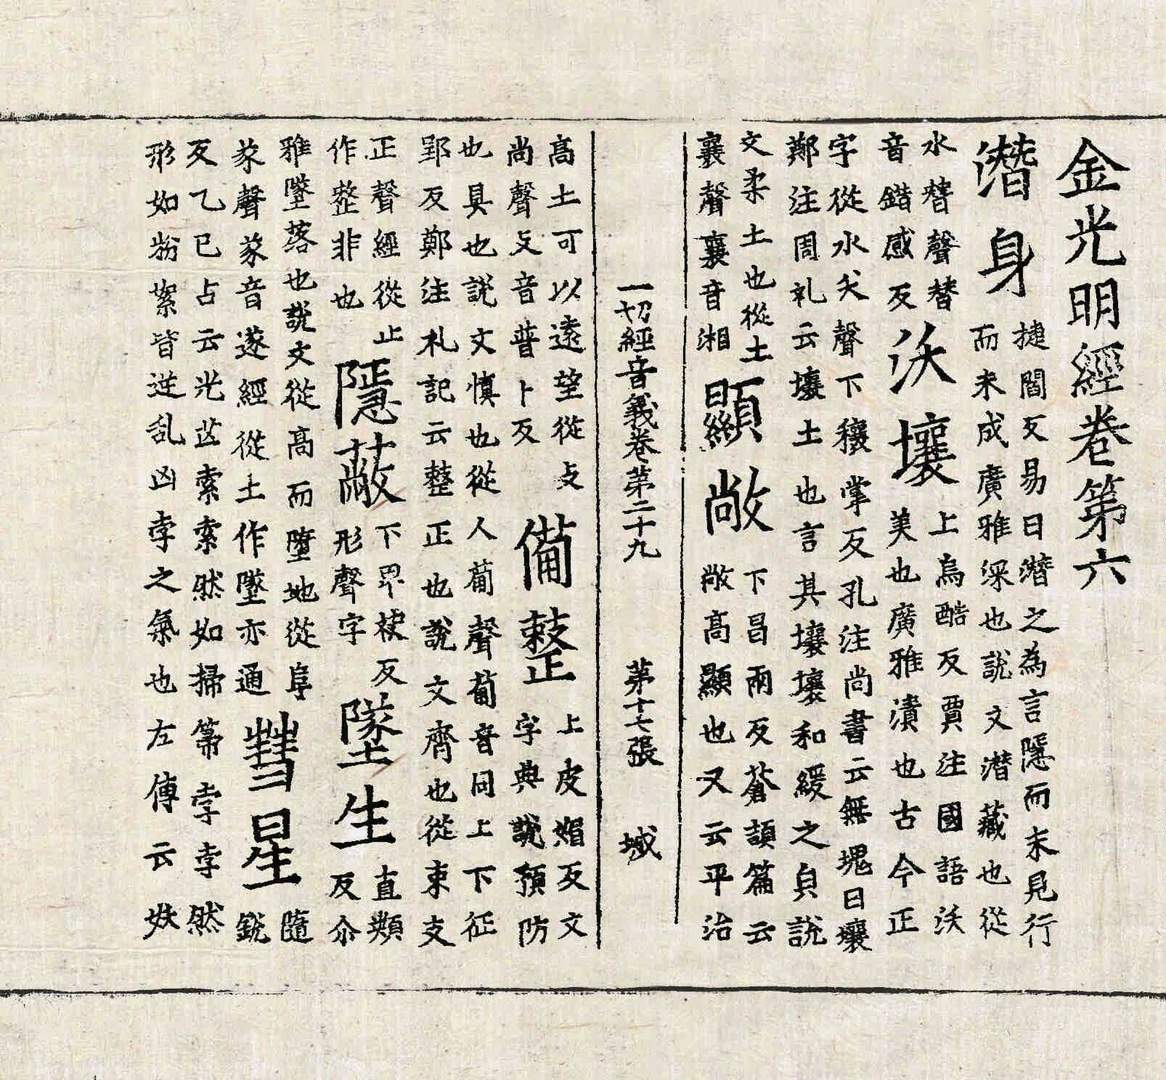 金光明經卷第六
潛身
捷閻反易曰潛之為言隱而未見行
而未成廣雅深也說文潛藏也從
水朁聲朁
音錯感反
沃壤
上烏酷反賈注國語沃
美也廣雅漬也古今正
字從水夭聲下穰掌反孔注尚書云無塊曰壤
鄭注周礼云壤土也言其壤壤和緩之皃說
文柔土也從土
襄聲襄音湘
顯敞
下昌兩反蒼頡篇云
敞高顯也又云平治
一切經音義卷第二十九 第十七張 城
高土可以遠望從攴
尚聲攴音普卜反
備整
上皮媚反文
字典說預防
也具也說文慎也從人𤰇聲𤰇音同上下征
郢反鄭注札記云整正也說文齊也從束支
正聲經從止
作整非也
隱蔽
下畀袂反
形聲字
墜生
直類
反尒
雅墜落也說文從高而墮地從阜
㒸聲㒸音遂經從土作墜亦通
彗星
隨
銳
反乙巳占云光芒索索然如掃箒孛孛然
形如粉絮皆逆乱凶孛之氣也左傳云妖